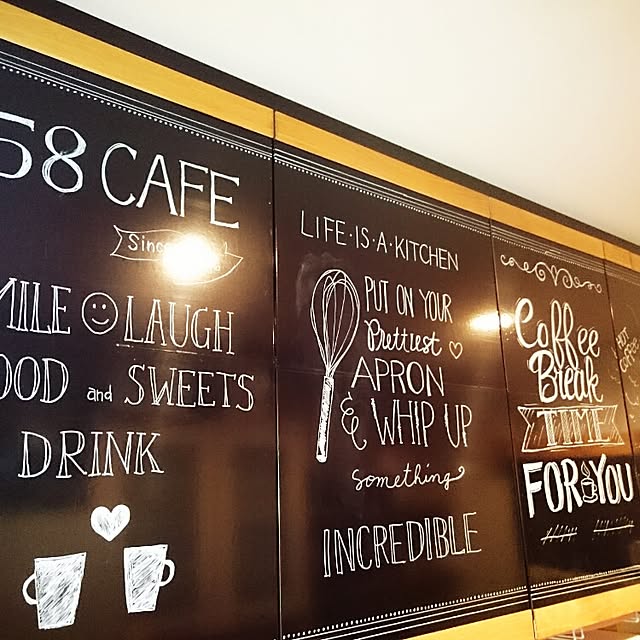 58 CAFE
Since
MILE LAUGH
OOD and SWEETS
DRINK
LIFE·IS·A·KITCHEN
PUT ON YOUR
Prettiest
APRON
& WHIP UP
something
INCREDIBLE
Coffee
Break
TIME
FOR YOU
HOT
COFFEE